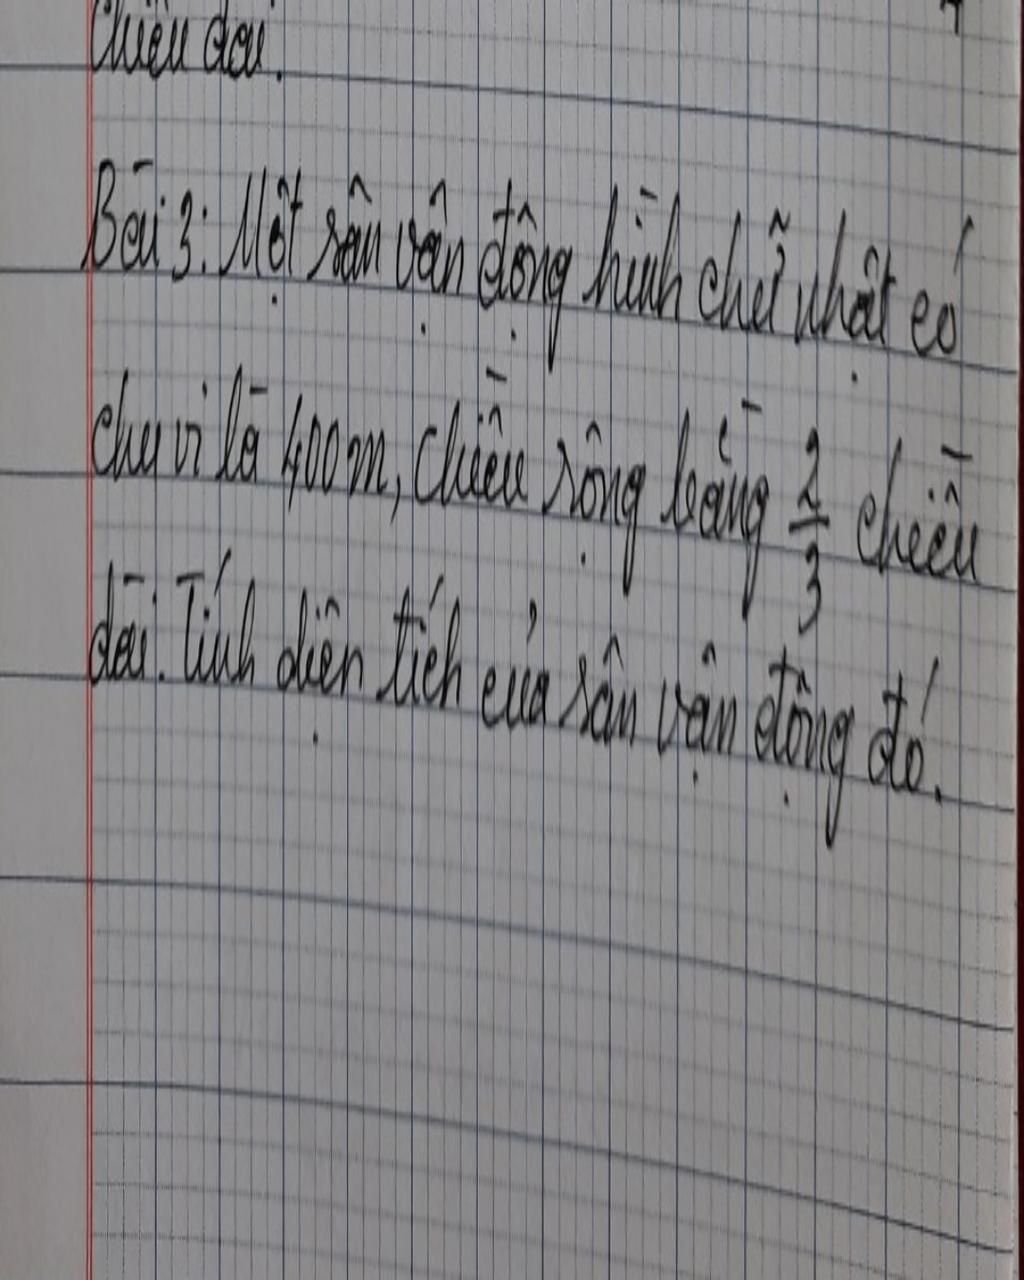 chiều dài.
Bài 3: Một sân vận động hình chữ nhật có
chu vi là 400m, chiều rộng bằng 2/3 chiều
dài. Tính diện tích của sân vận động đó.